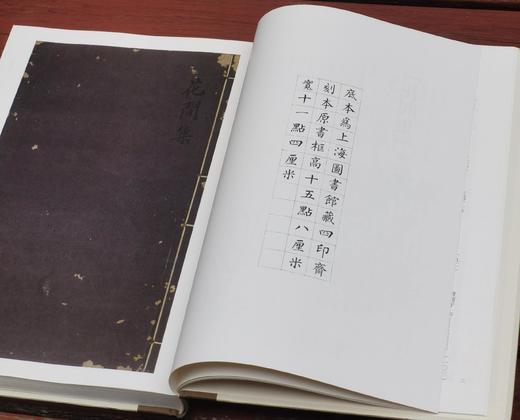 花間集
底本爲上海圖書館藏四印齋
刻本原書框高十五點八厘米
寬十一點四厘米